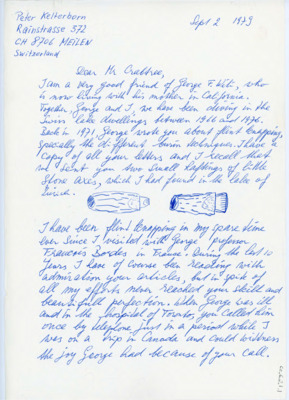 Peter Kelterborn
Rainstrasse 572
CH 8706 MEILEN
Switzerland
Sept 2 1979
Dear Mr. Crabtree,
I am a very good friend of George, who
is now living with his mother in California.
Together, George and I, we have been diving in the
Swiss lake dwellings between 1966 and 1976.
Back in 1971, George wrote you about flint knapping,
specially the different burin techniques. I have a
copy of all your letters and I recall that
we sent you two small haftings of little
stone axes, which I had found in the lake of
Zürich.
I have been flint knapping in my spare time
ever since I visited with George Professor
Francois Bordes in France. During the last 10
years I have of course been reacting with
admiration your articles, but in spite of
all my efforts never reached your skill and
beautifull perfection. When George was ill
and in the hospital of Toronto, you called him
once by telephone just in a period while I
was on a trip in Canada and could witness
the joy George had because of your call.